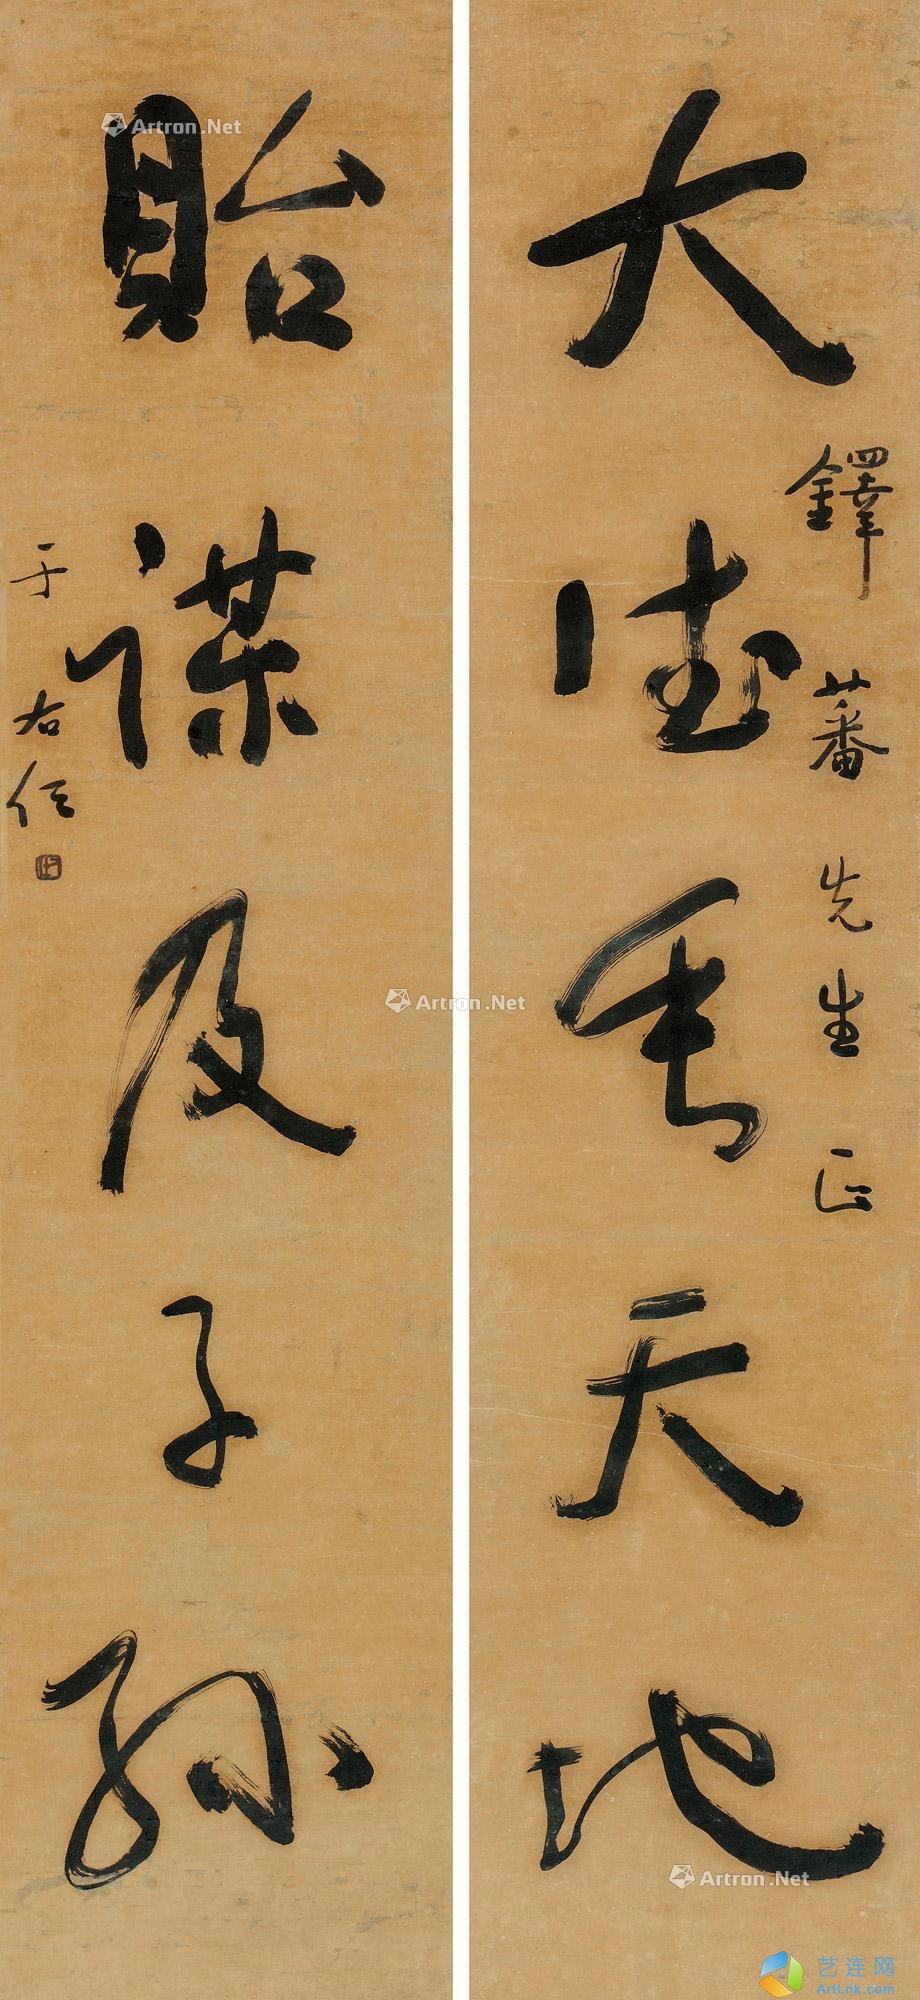 大德垂天地
鐸蕃先生正
貽謀及子孫
于右任
Artron.Net
Artron.Net
Artron.Net
艺连网
ArtLnk.com